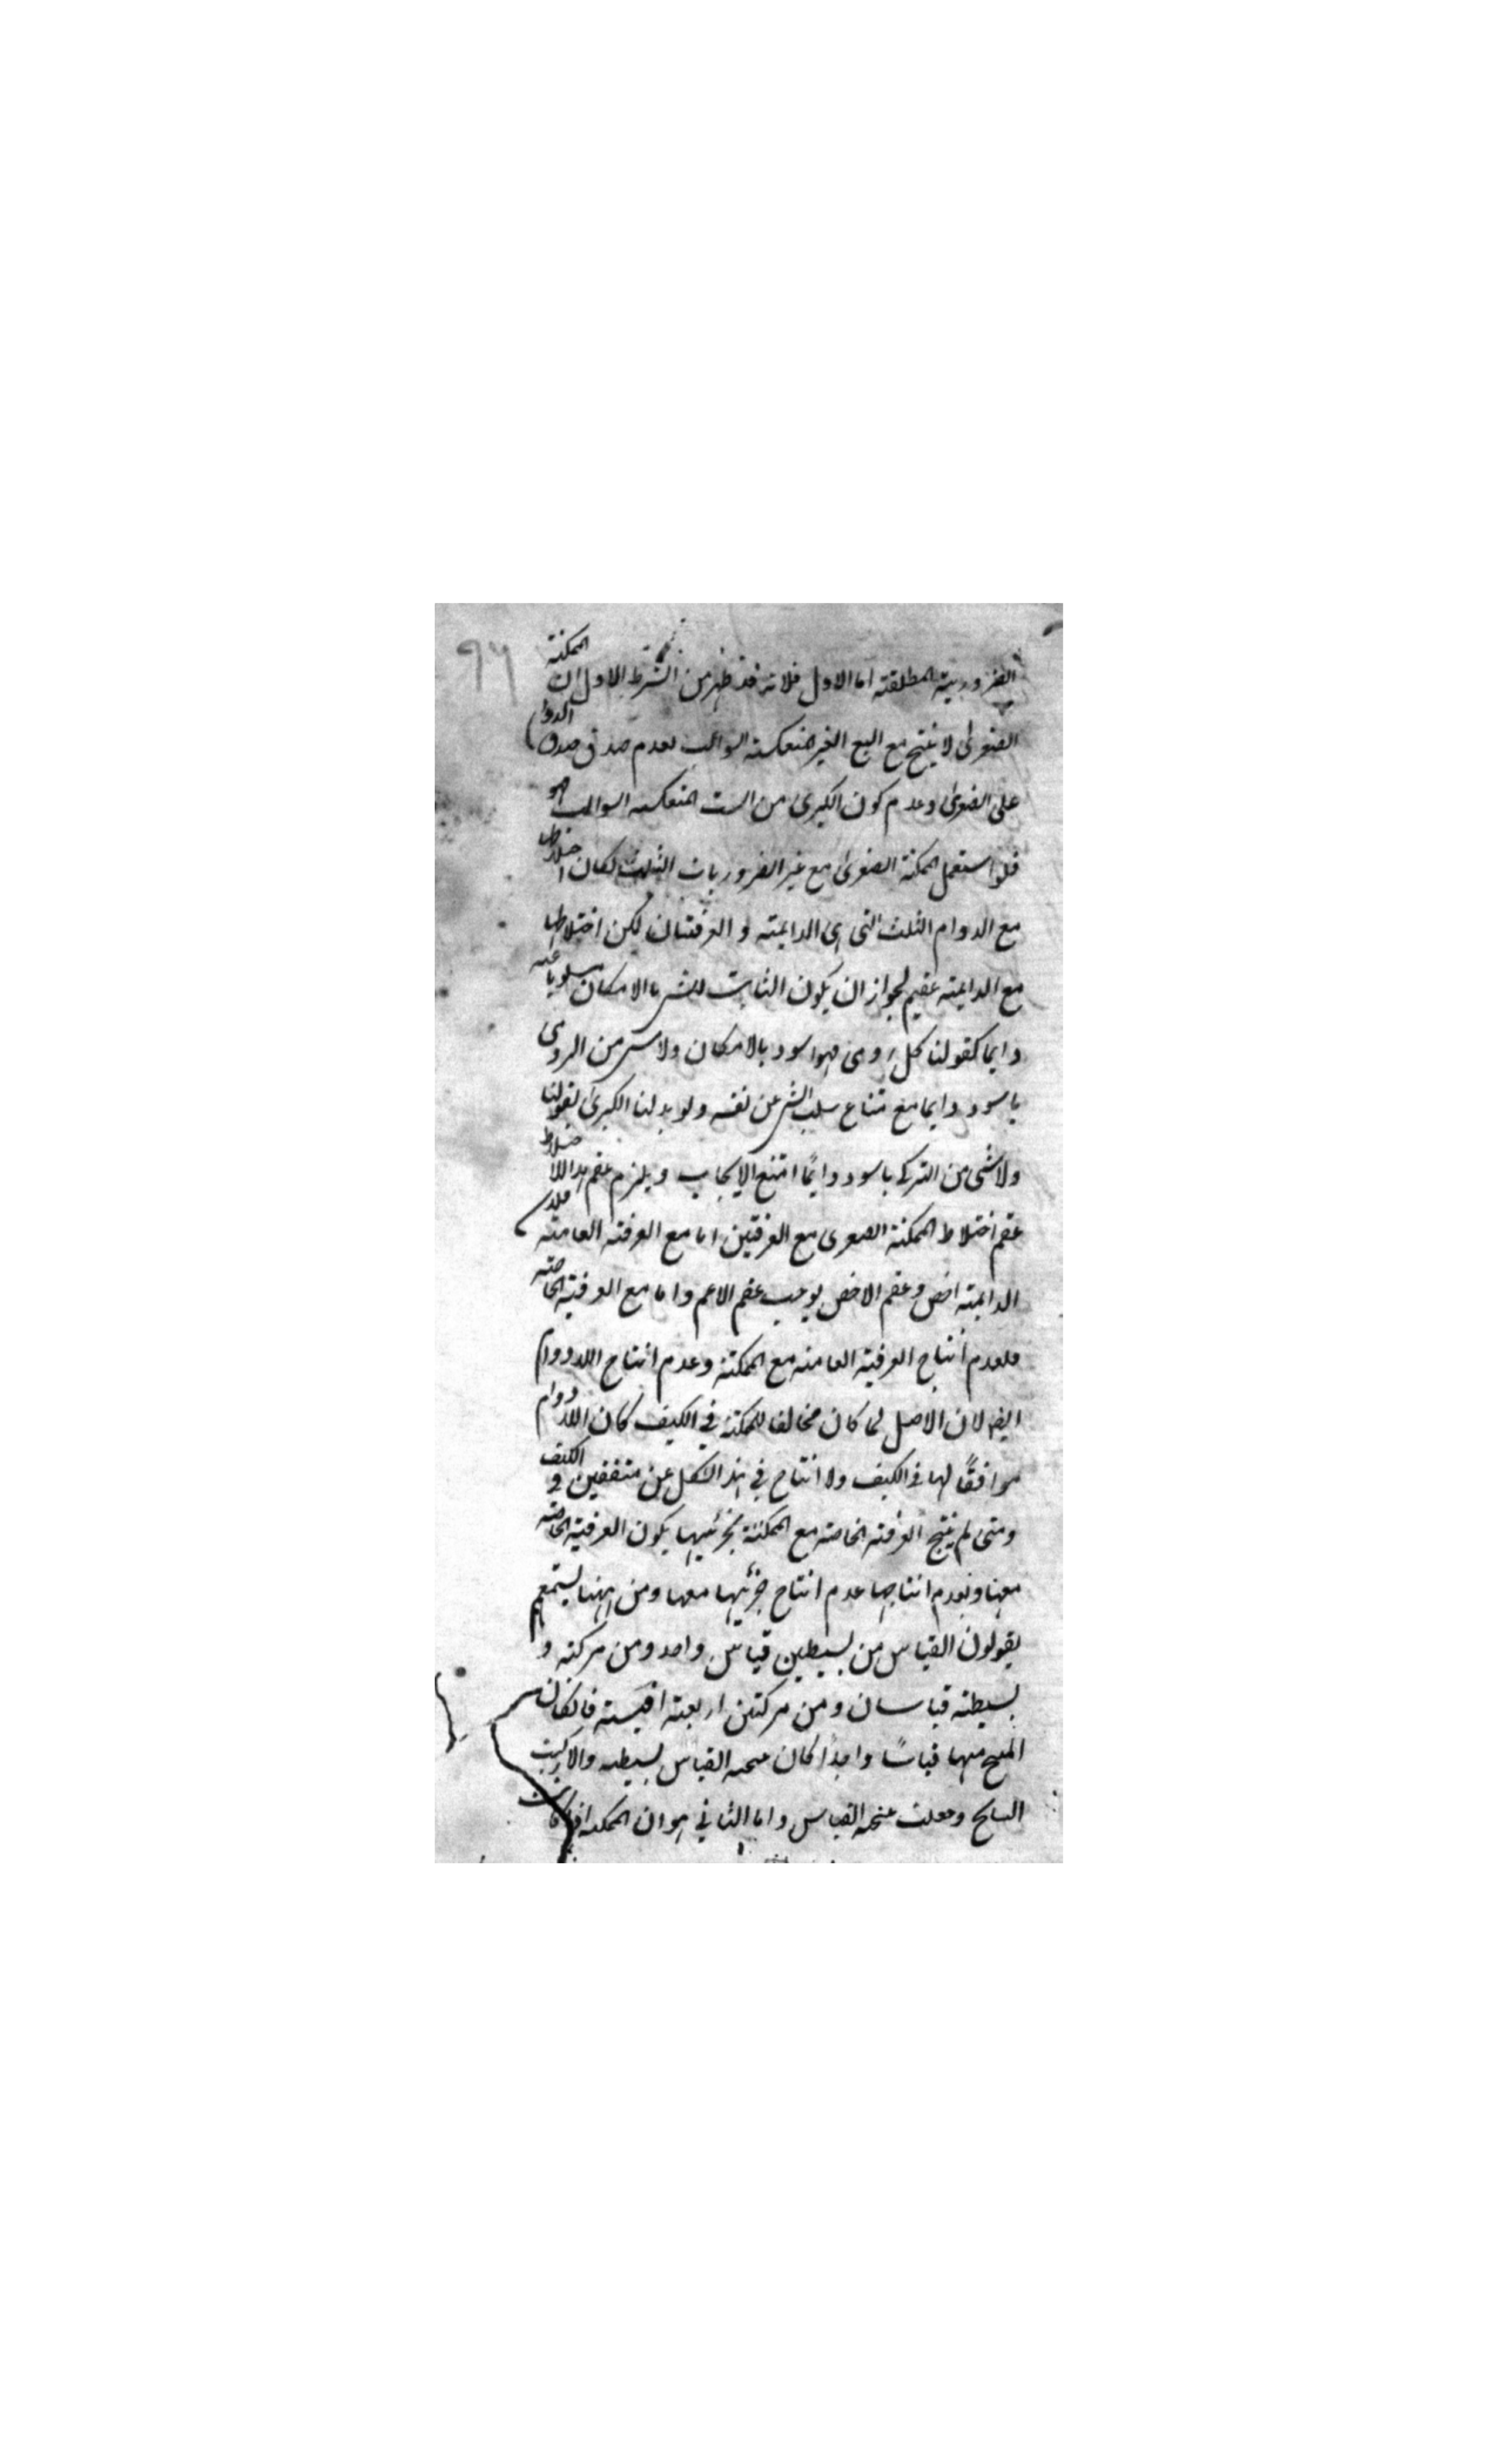 ٩٦
الضرورية المطلقة اما الاول فلانه قد ظهر من الشرط الاول ان الممكنة
الصغرى لا ينتج مع السبع الغير المنعكسة السوالب لعدم صدق صدق الدوام
على الصغرى وعدم كون الكبرى من الست المنعكسة السوالب هو
فلو استعمل الممكنة الصغرى مع غير الضروريات الثلث لكان اختلاط
مع الدوام الثلث التى هى الدايمة و العرفيتان لكن اختلاطها
مع الدايمة عقيم لجواز ان يكون الثابت للشئ بالامكان مسلوبا عنه
دايما كقولنا كل رومى فهو اسود بالامكان ولا شئ من الرومى
باسود دايما مع امتناع سلب الشئ عن نفسه ولو بدلنا الكبرى بقولنا
ولا شئ من التركى باسود دايمًا امتنع الايجاب ويلزم عقم هذا الاختلاط
عقم اختلاط الممكنة الصغرى مع العرفيتين اما مع العرفية العامة فلان
الدايمة اخص وعقم الاخص يوجب عقم الاعم واما مع العرفية الخاصة
فلعدم انتاج العرفية العامة مع الممكنة وعدم انتاج اللادوام
ايضا لان الاصل لما كان مخالفا للممكنة في الكيف كان اللادوام
موافقًا لها في الكيف ولا انتاج في هذا الشكل عن متفقين في الكيف
ومتى لم ينتج العرفية الخاصة مع الممكنة بجزئيها يكون العرفية الخاصة
معها وبعدم انتاجها عدم انتاج جزئيها معها ومن ههنا يستمعهم
يقولون القياس من بسيطين قياس واحد ومن مركبة و
بسيطة قياسان ومن مركبتين اربعة اقيسة فان كان
المنتج منها قياسًا واحدًا كان نتيجة القياس بسيطة والا ركبت
النتايج وجعلت نتيجة القياس واما الثاني هو ان الممكنة اذا كانت